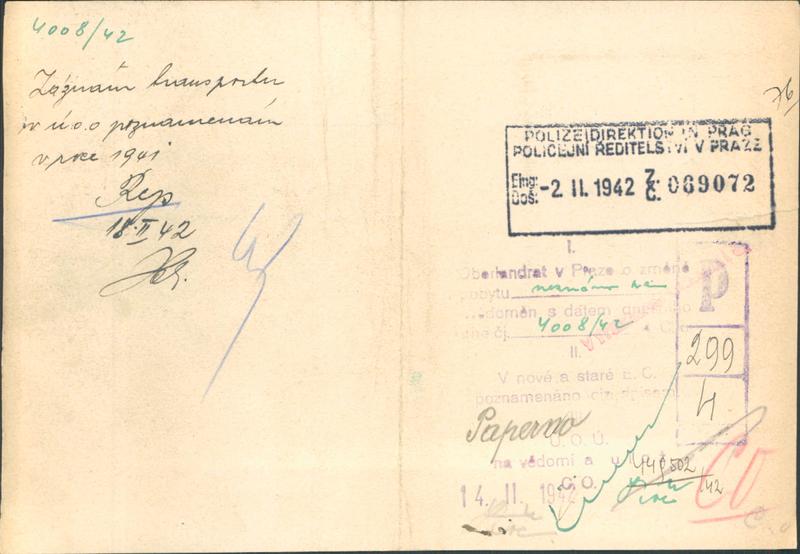 4008/42
Záznam transportu
v ú.o.o poznamenán
v roce 1941
Rep
18.II 42
76
POLIZEIDIREKTION IN PRAG
POLICEJNÍ ŘEDITELSTVÍ V PRAZE
Eing:
Doš:
-2.II.1942 Z. Č. 069072
I.
Oberlandrat v Praze o změně
pobytu neznámo kam
vědoměn s datem dnešního
čj. 4008/42
II.
V nové a staré E.C.
poznamenáno
P
299
4
Paperno
Ú.O.Ú.
na vědomí a
C.O.
149502
/42
14.II.1942
CO